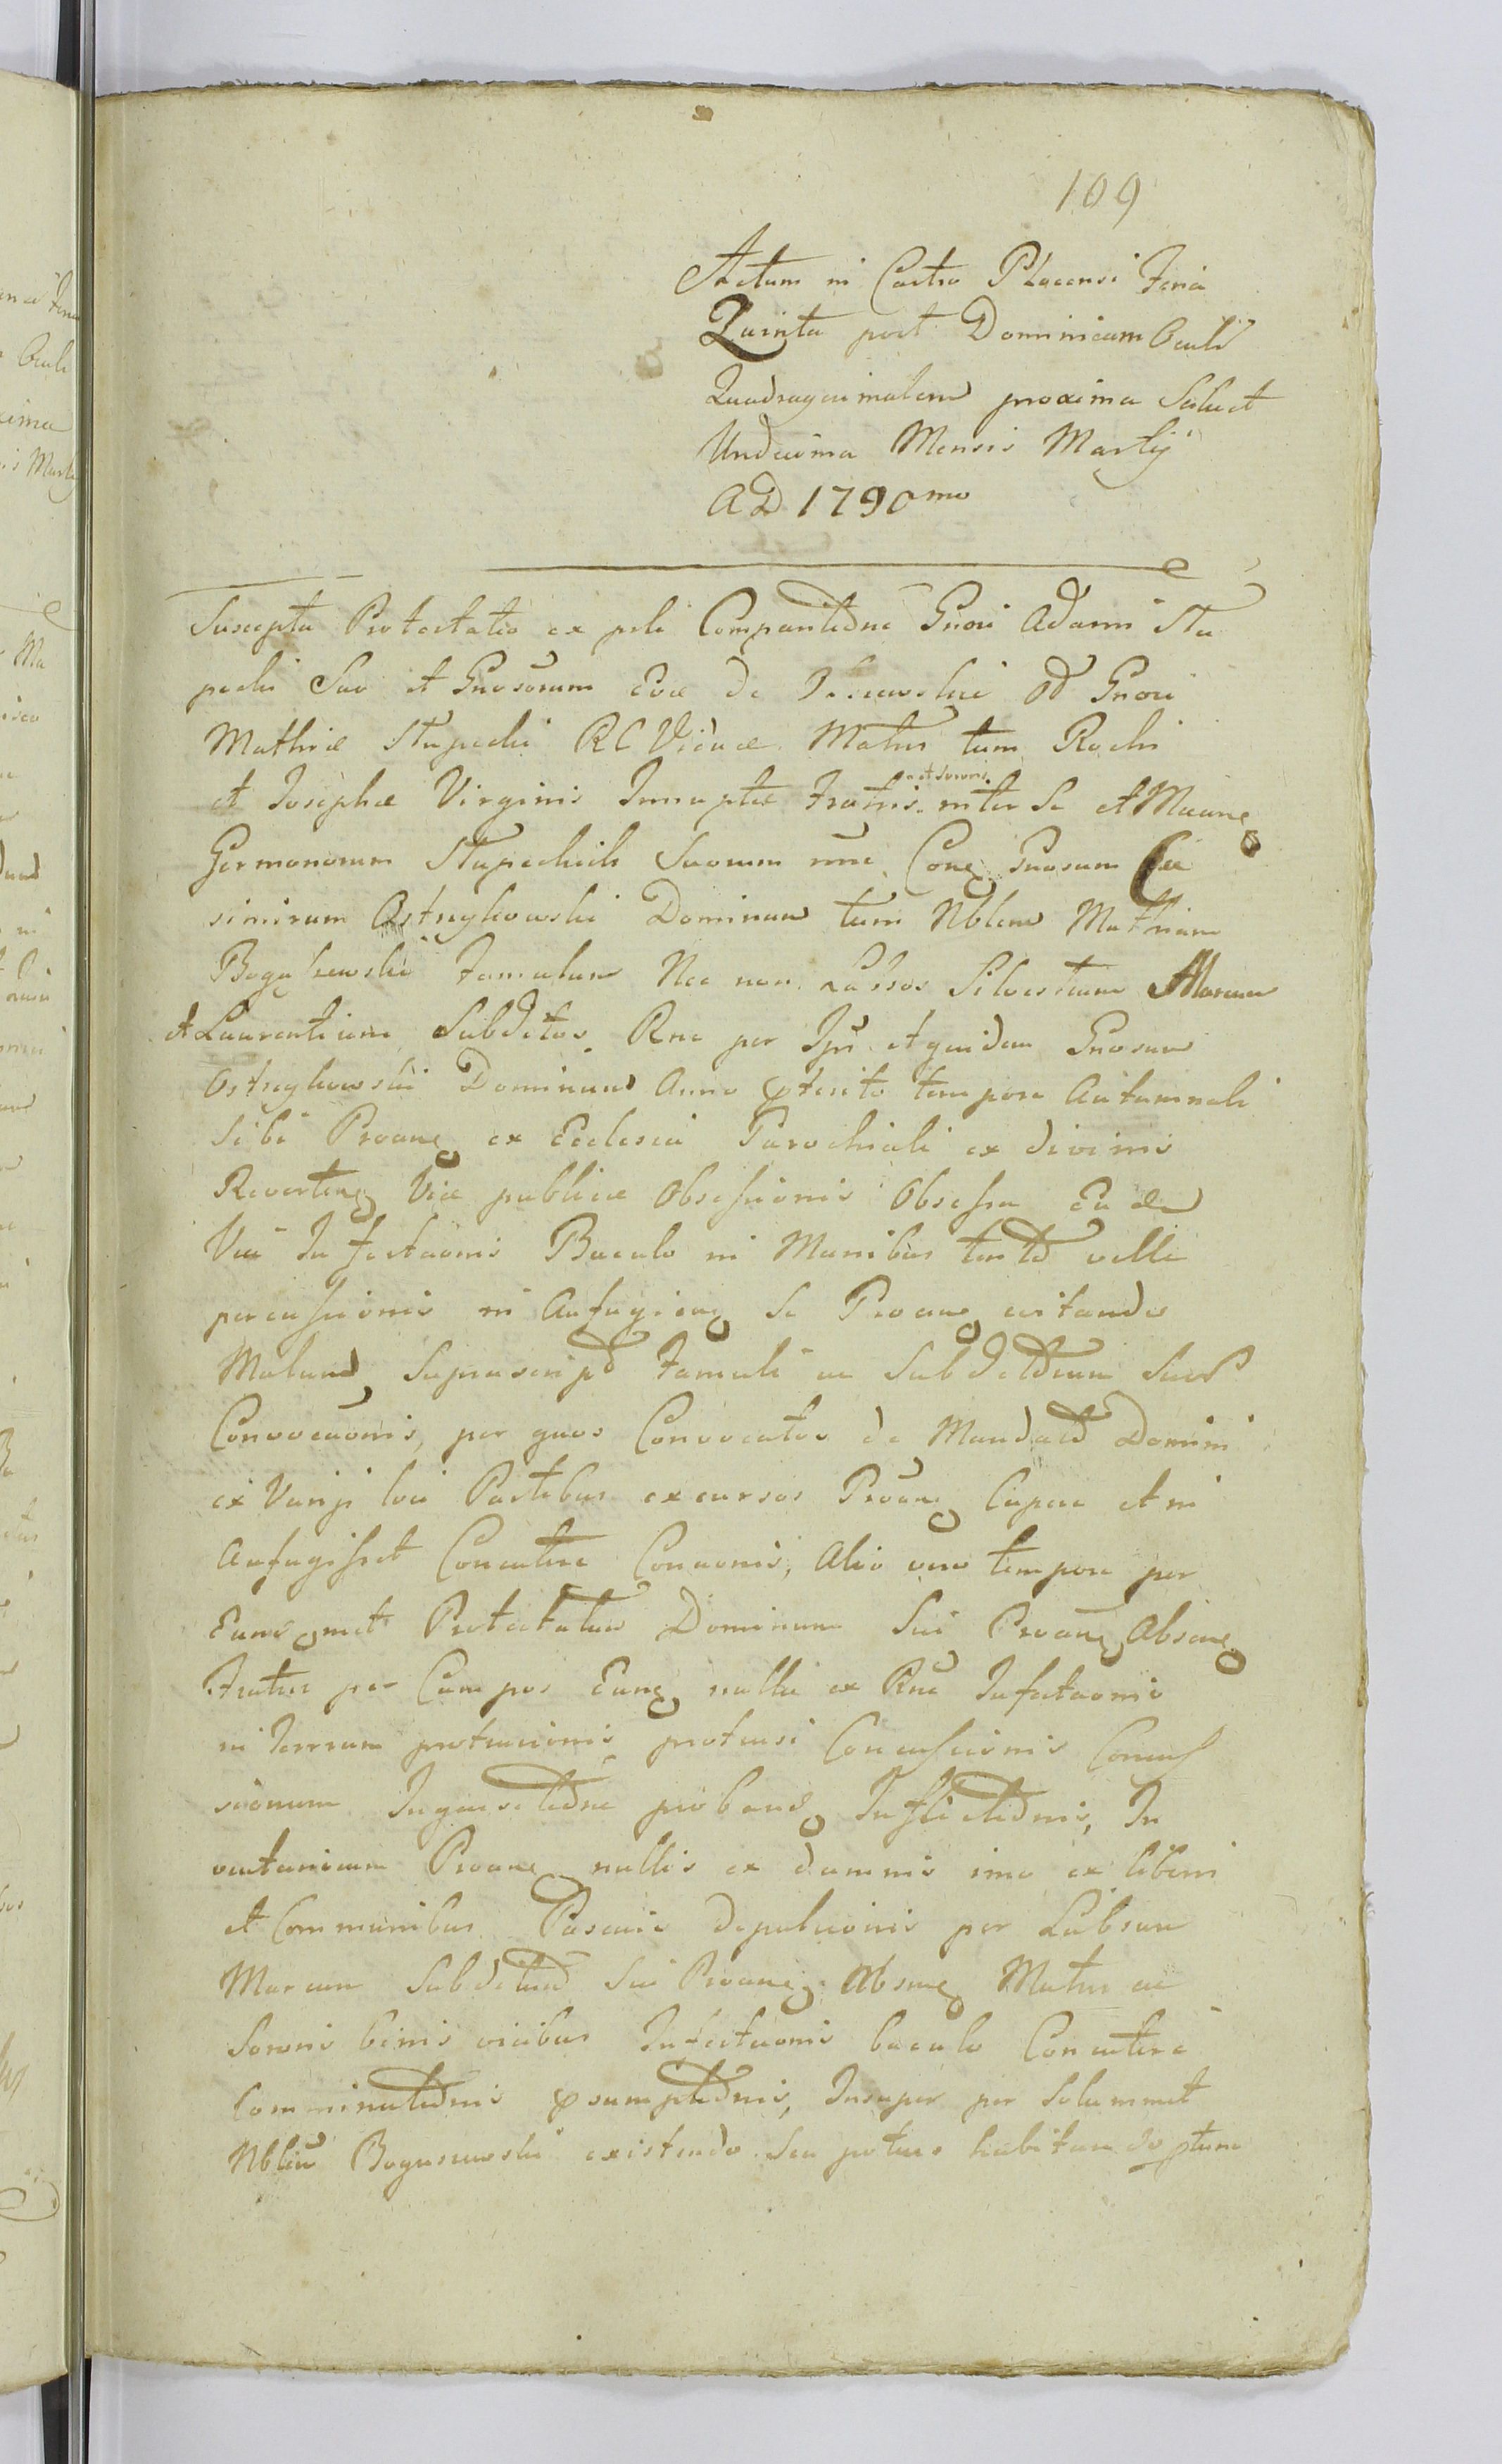 109
Actum in Castro Placensi Feria
Quinta post Dominicam Oculi
Quadragesimalem proxima Scilicet
Undecima Mensis Martij
AD 1790mo
Suscepta Protestatio ex psli Comparitõne Gnosi Adami Stu
pecki Suo et Gnosorum Evæ de olim Gnosi
Mathiæ Stupecki RC Viduæ Matris tum Rochi
et Josephæ Virginis Innuptæ Fratris
et Sororis
inter Se et Meane
Germanorum Stupeckich Suorum nne Cong Gnosum Ca
simirum Ostrzykowski Dominum tum Nblem Mathiam
Boguszewski Famulum Nec non Labsos Silvestrum Marcum
et Laurentium Subditos Rne per Ipsũ et quidem Gnosum
Ostrzykowski Dominum Anno pterito tempore Autumnali
Sibi Proang ex Ecclesia Parochiali ex divinis
Reverteng Viæ publicæ Obsessionis Obsessa Eadem
Via Infectaonis Baculo in Manibus velle
percussionis ni Aufugieng Se Proang evitando
Malum Suprascrip Famuli ac Subditorum Suor
Convocaõnis, per quos Convocatos de Mandato Domini
ex Varijs loci Partibus excursos Proang Capere et ni
Aufugisset Concutere Conaonis, Alio vero tempore per
Eungmet Protestatum Dominum Sui Proang Abseng
Fratris per Campos Eung nulla ex Rne Infectaonis
in Terram protrusionis protrusi Concussionis Concus
sionum Inquisitõne proband Inflictõnis, In
Proang nullis ex damnis imo ex liberis
et Communibus Pascuis depulsionis per Labsum
Marcum Subditum Sui Proang Abseng Matris ac
Sororis binis vicibus Infectaonis baculo Concutere
Comminatõnis psumptõnis, Insuper per Solummet
Nblem Boguszewski existendo Seu potius habitan